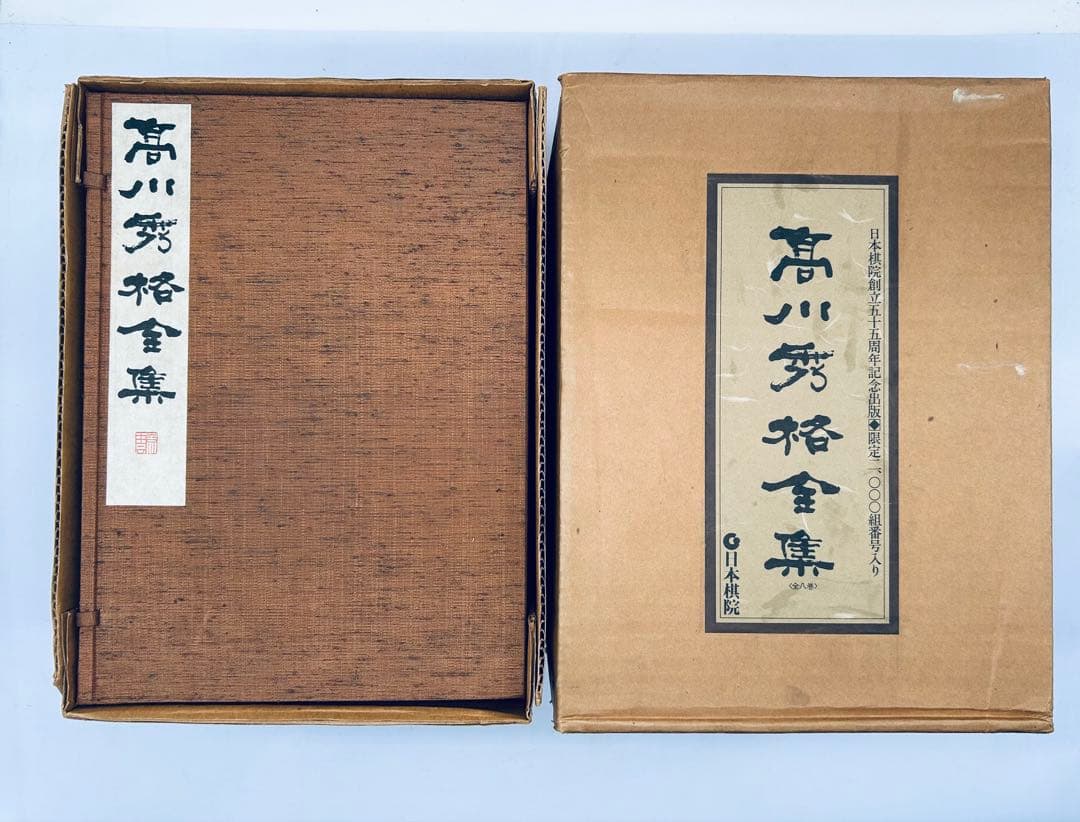 高川秀格全集
日本棋院創立五十五周年記念出版◆限定二、〇〇〇組番号入り
高川秀格全集
〈全八巻〉
日本棋院